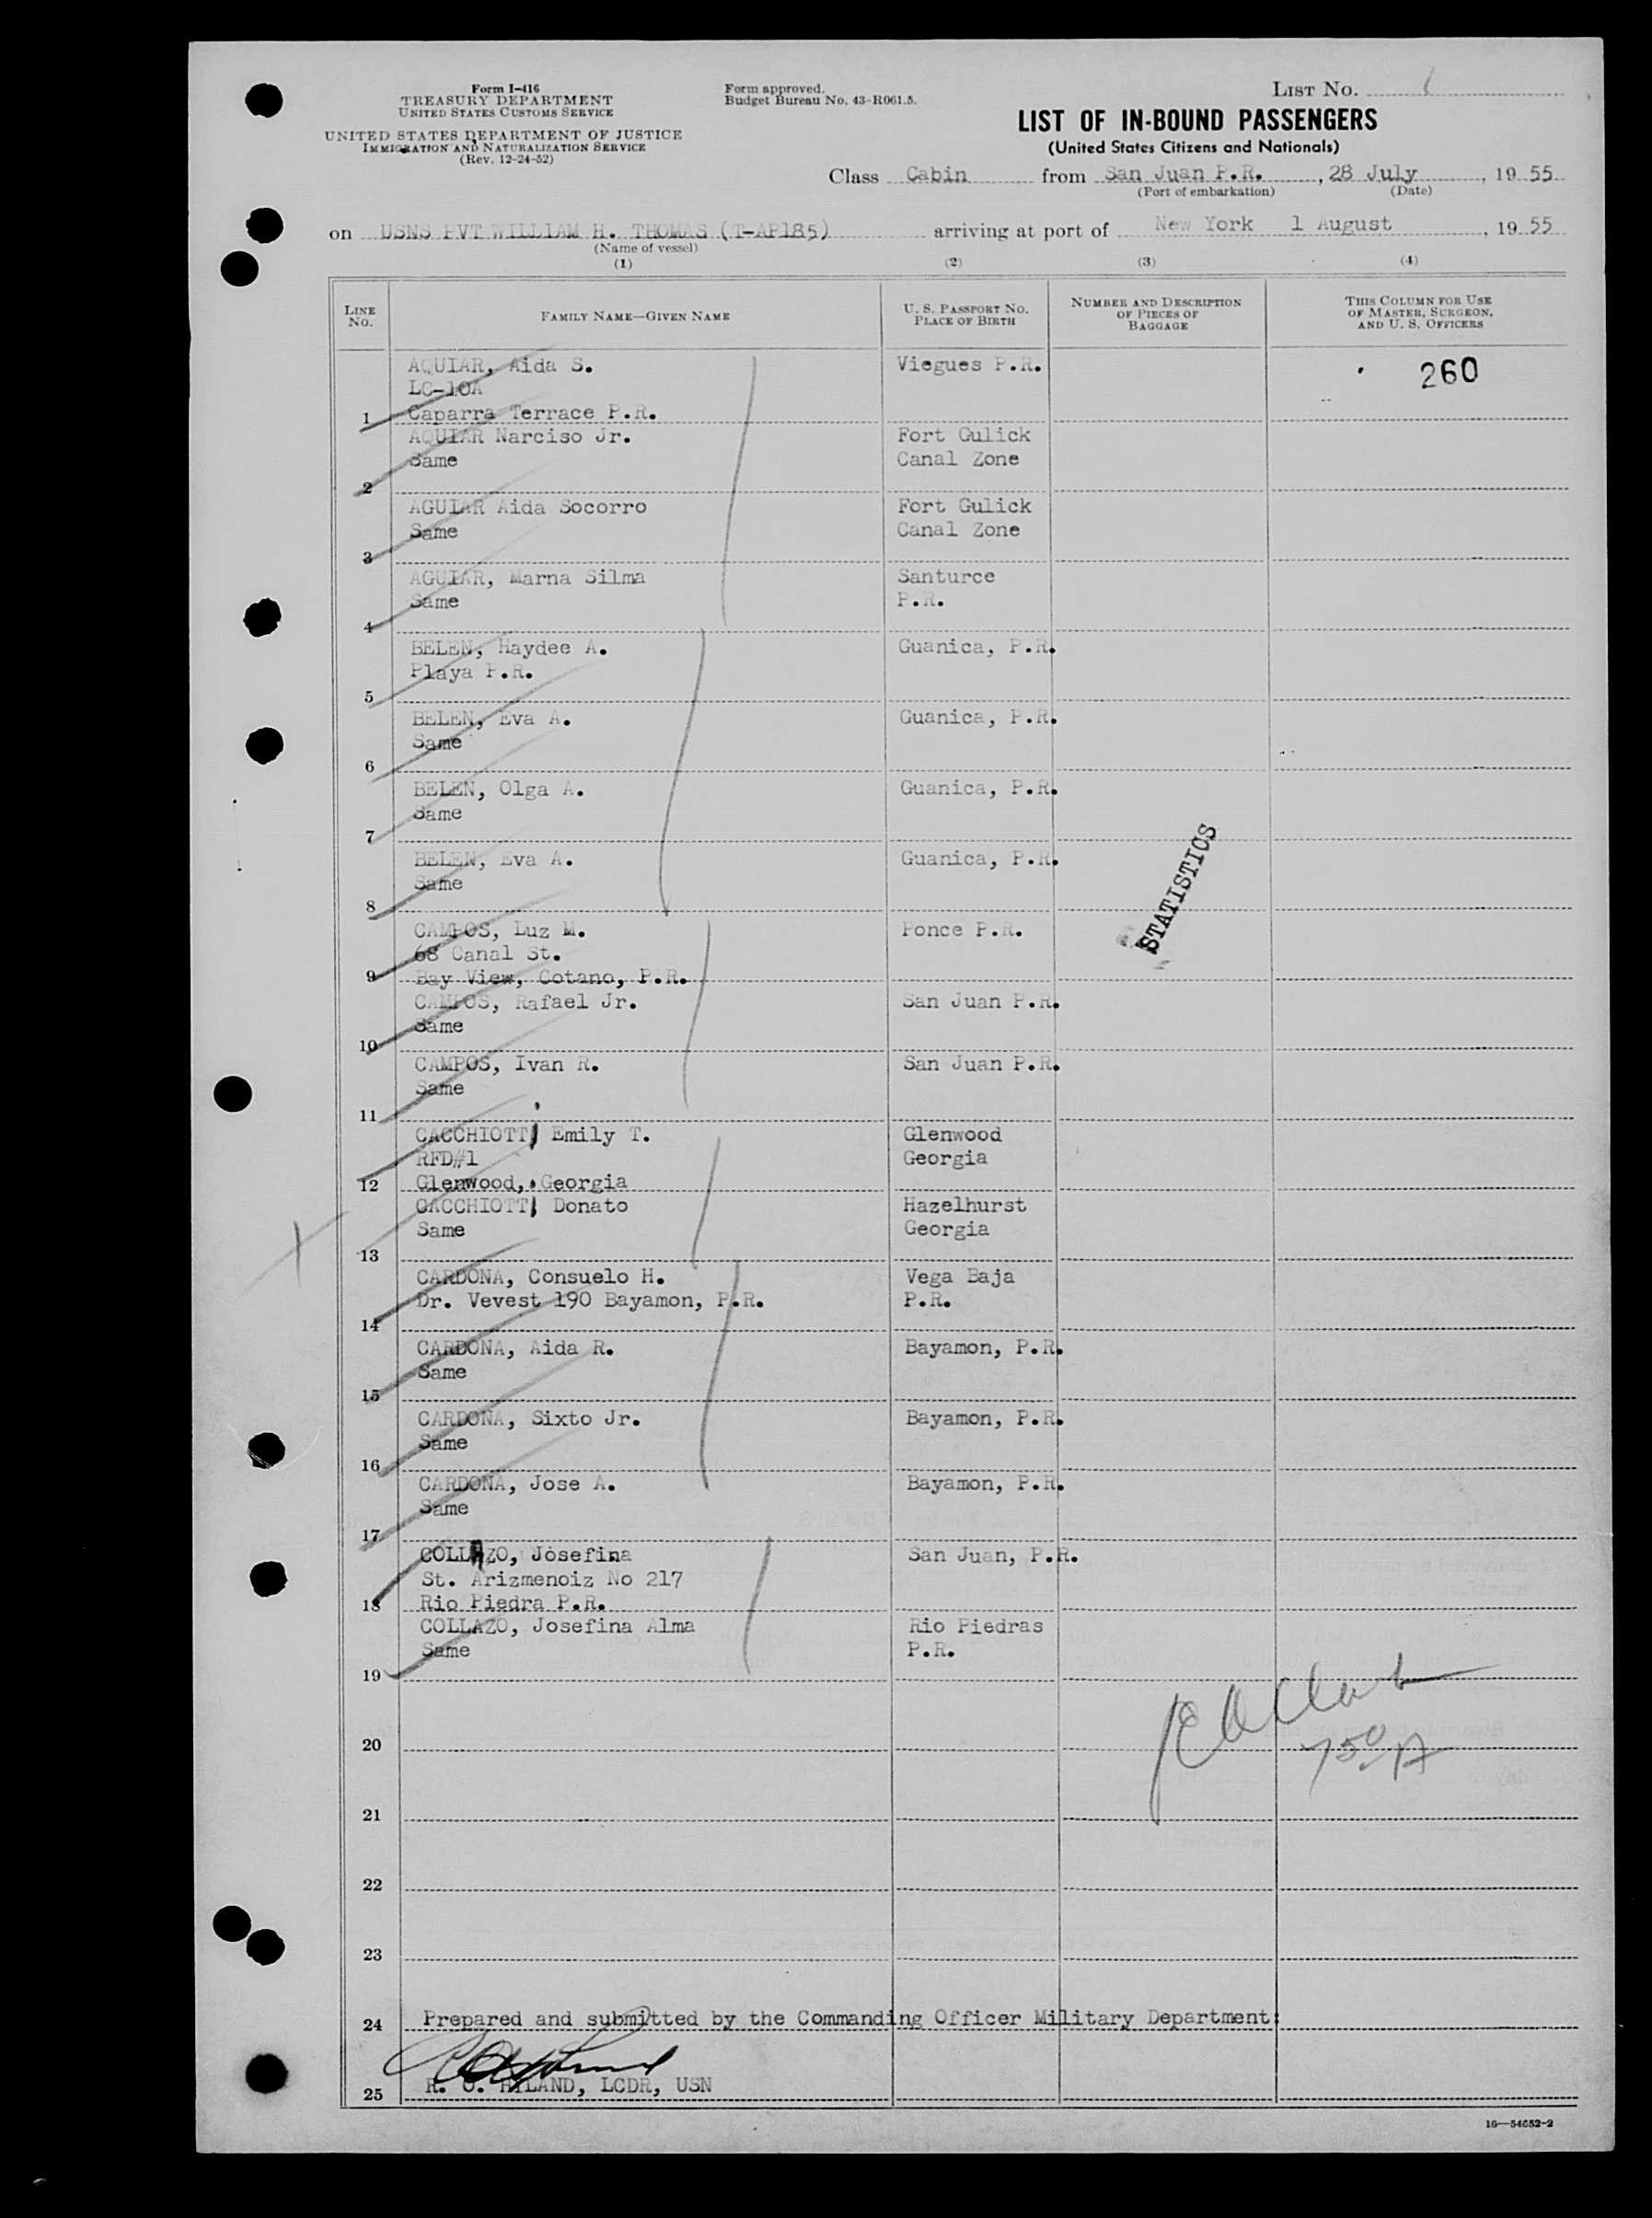 Form I-416
TREASURY DEPARTMENT
UNITED STATES CUSTOMS SERVICE
UNITED STATES DEPARTMENT OF JUSTICE
IMMIGRATION AND NATURALIZATION SERVICE
(Rev. 12-24-52)
Form approved.
Budget Bureau No. 43-R061.5.
LIST NO.
LIST OF IN-BOUND PASSENGERS
(United States Citizens and Nationals)
Class Cabin from San Juan P.R., 28 July, 19 55
(Port of embarkation) (Date)
on USNS PVT WILLIAM H. THOMAS (T-AP185) arriving at port of New York 1 August, 19 55
(Name of vessel)
(1) (2) (3) (4)
LINE NO.
FAMILY NAME—GIVEN NAME
U. S. PASSPORT NO.
PLACE OF BIRTH
NUMBER AND DESCRIPTION
OF PIECES OF
BAGGAGE
THIS COLUMN FOR USE
OF MASTER, SURGEON,
AND U. S. OFFICERS
AQUIAR, Aida S. Viegues P.R. 260
LC-10A
1 Caparra Terrace P.R.
AQUIAR Narciso Jr. Fort Gulick
Same Canal Zone
2
AGUIAR Aida Socorro Fort Gulick
Same Canal Zone
3
AGUIAR, Marna Silma Santurce
Same P.R.
4
BELEN, Haydee A. Guanica, P.R.
Playa P.R.
5
BELEN, Eva A. Guanica, P.R.
Same
6
BELEN, Olga A. Guanica, P.R.
Same
7
BELEN, Eva A. Guanica, P.R.
Same
8
STATISTICS
CAMPOS, Luz M. Ponce P.R.
68 Canal St.
9 Bay View, Cotano, P.R.
CAMPOS, Rafael Jr. San Juan P.R.
Same
10
CAMPOS, Ivan R. San Juan P.R.
Same
11
CACCHIOTTI Emily T. Glenwood
RFD#1 Georgia
12 Glenwood, Georgia
CACCHIOTTI Donato Hazelhurst
Same Georgia
13
CARDONA, Consuelo H. Vega Baja
Dr. Vevest 190 Bayamon, P.R. P.R.
14
CARDONA, Aida R. Bayamon, P.R.
Same
15
CARDONA, Sixto Jr. Bayamon, P.R.
Same
16
CARDONA, Jose A. Bayamon, P.R.
Same
17
COLLAZO, Josefina San Juan, P.R.
St. Arizmenoiz No 217
18 Rio Piedra P.R.
COLLAZO, Josefina Alma Rio Piedras
Same P.R.
19
20
21
22
23
24 Prepared and submitted by the Commanding Officer Military Department:
25 R. O. HYLAND, LCDR, USN
16—54652-2